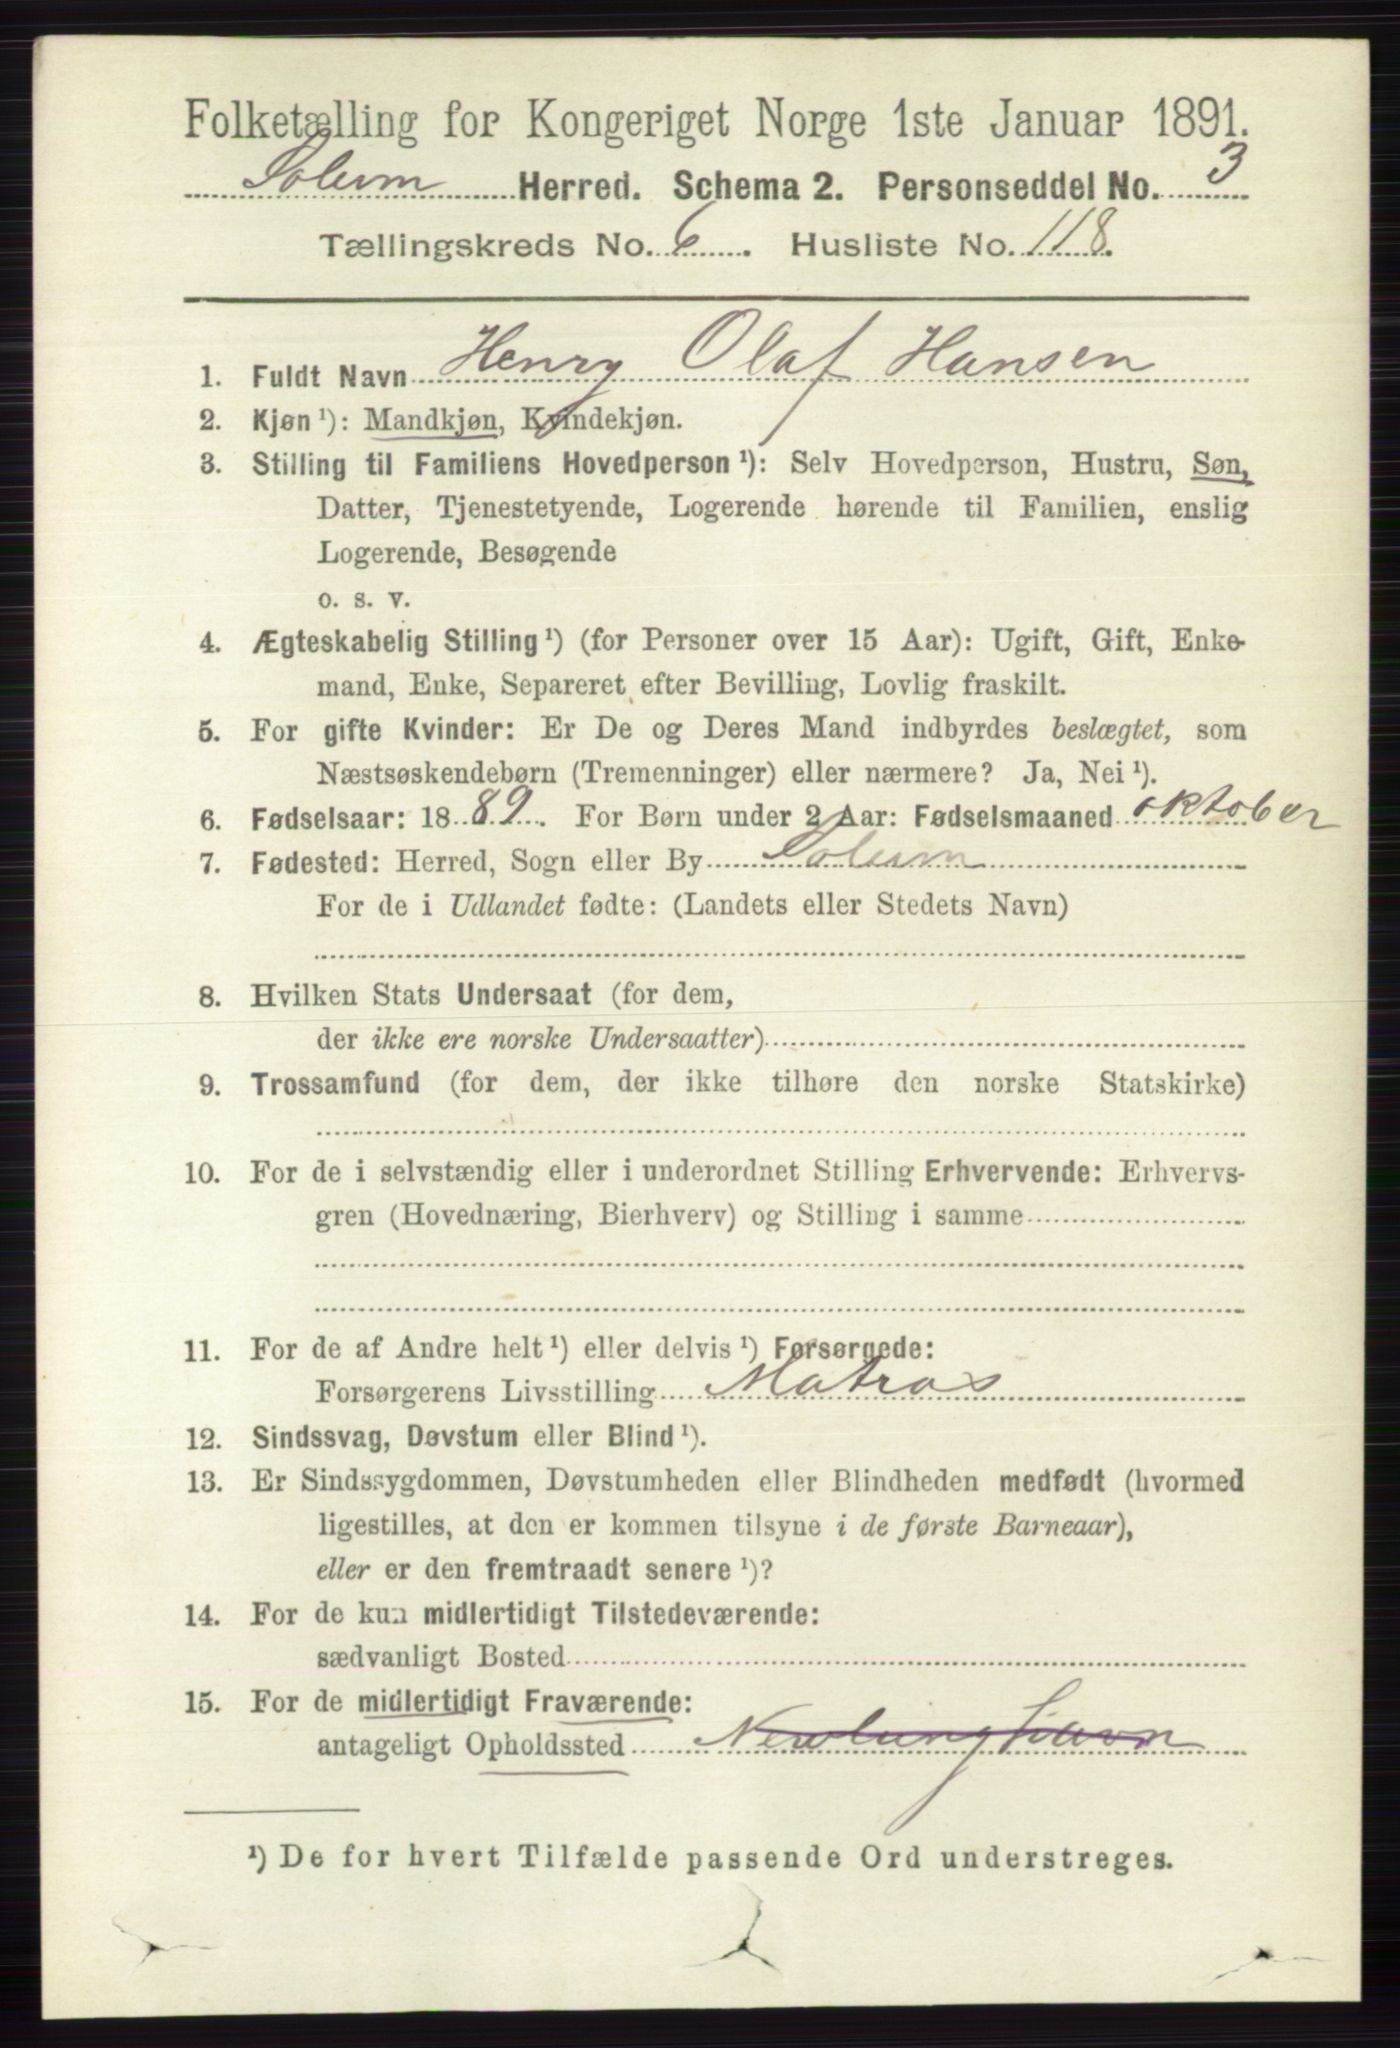 Folketælling for Kongeriget Norge 1ste Januar 1891.
Solum Herred. Schema 2. Personseddel No. 3
Tællingskreds No. 6. Husliste No. 118.
1. Fuldt Navn Henry Olaf Hansen
2. Kjøn ¹): Mandkjøn, Kvindekjøn.
3. Stilling til Familiens Hovedperson ¹): Selv Hovedperson, Hustru, Søn,
Datter, Tjenestetyende, Logerende hørende til Familien, enslig
Logerende, Besøgende
o. s. v.
4. Ægteskabelig Stilling ¹) (for Personer over 15 Aar): Ugift, Gift, Enke-
mand, Enke, Separeret efter Bevilling, Lovlig fraskilt.
5. For gifte Kvinder: Er De og Deres Mand indbyrdes beslægtet, som
Næstsøskendebørn (Tremenninger) eller nærmere? Ja, Nei ¹).
6. Fødselsaar: 1889. For Børn under 2 Aar: Fødselsmaaned oktober
7. Fødested: Herred, Sogn eller By Solum
For de i Udlandet fødte: (Landets eller Stedets Navn)
8. Hvilken Stats Undersaat (for dem,
der ikke ere norske Undersaatter)
9. Trossamfund (for dem, der ikke tilhøre den norske Statskirke)
10. For de i selvstændig eller i underordnet Stilling Erhvervende: Erhvervs-
gren (Hovednæring, Bierhverv) og Stilling i samme
11. For de af Andre helt ¹) eller delvis ¹) Forsørgede:
Forsørgerens Livsstilling Matros
12. Sindssvag, Døvstum eller Blind ¹).
13. Er Sindssygdommen, Døvstumheden eller Blindheden medfødt (hvormed
ligestilles, at den er kommen tilsyne i de første Barneaar),
eller er den fremtraadt senere ¹)?
14. For de kun midlertidigt Tilstedeværende:
sædvanligt Bosted
15. For de midlertidigt Fraværende:
antageligt Opholdssted
¹) De for hvert Tilfælde passende Ord understreges.